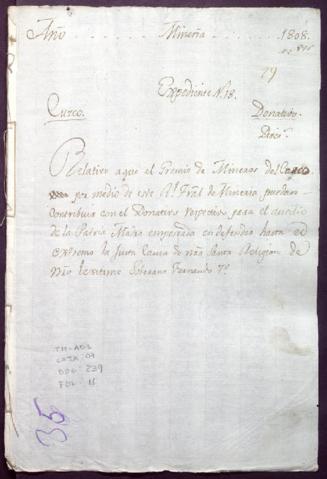 Año . . . . . . . . Mineria . . . . . . . 1808.
29
Expediente N. 18.
Cuzco. Donativo.
Relativo a que el Gremio de Mineros del Cuzco
por medio de este Rl. Tral de Mineria puedan
contribuir con el Donativo respectivo para el auxilio
de la Patria Madre empeñada en defender hasta el
extremo la Justa Causa de nra Santa Religion de
nro Lexitimo Soberano Fernando 7º
TM-AD2
CAJA: 09
DOC: 239
FOL: 16
35